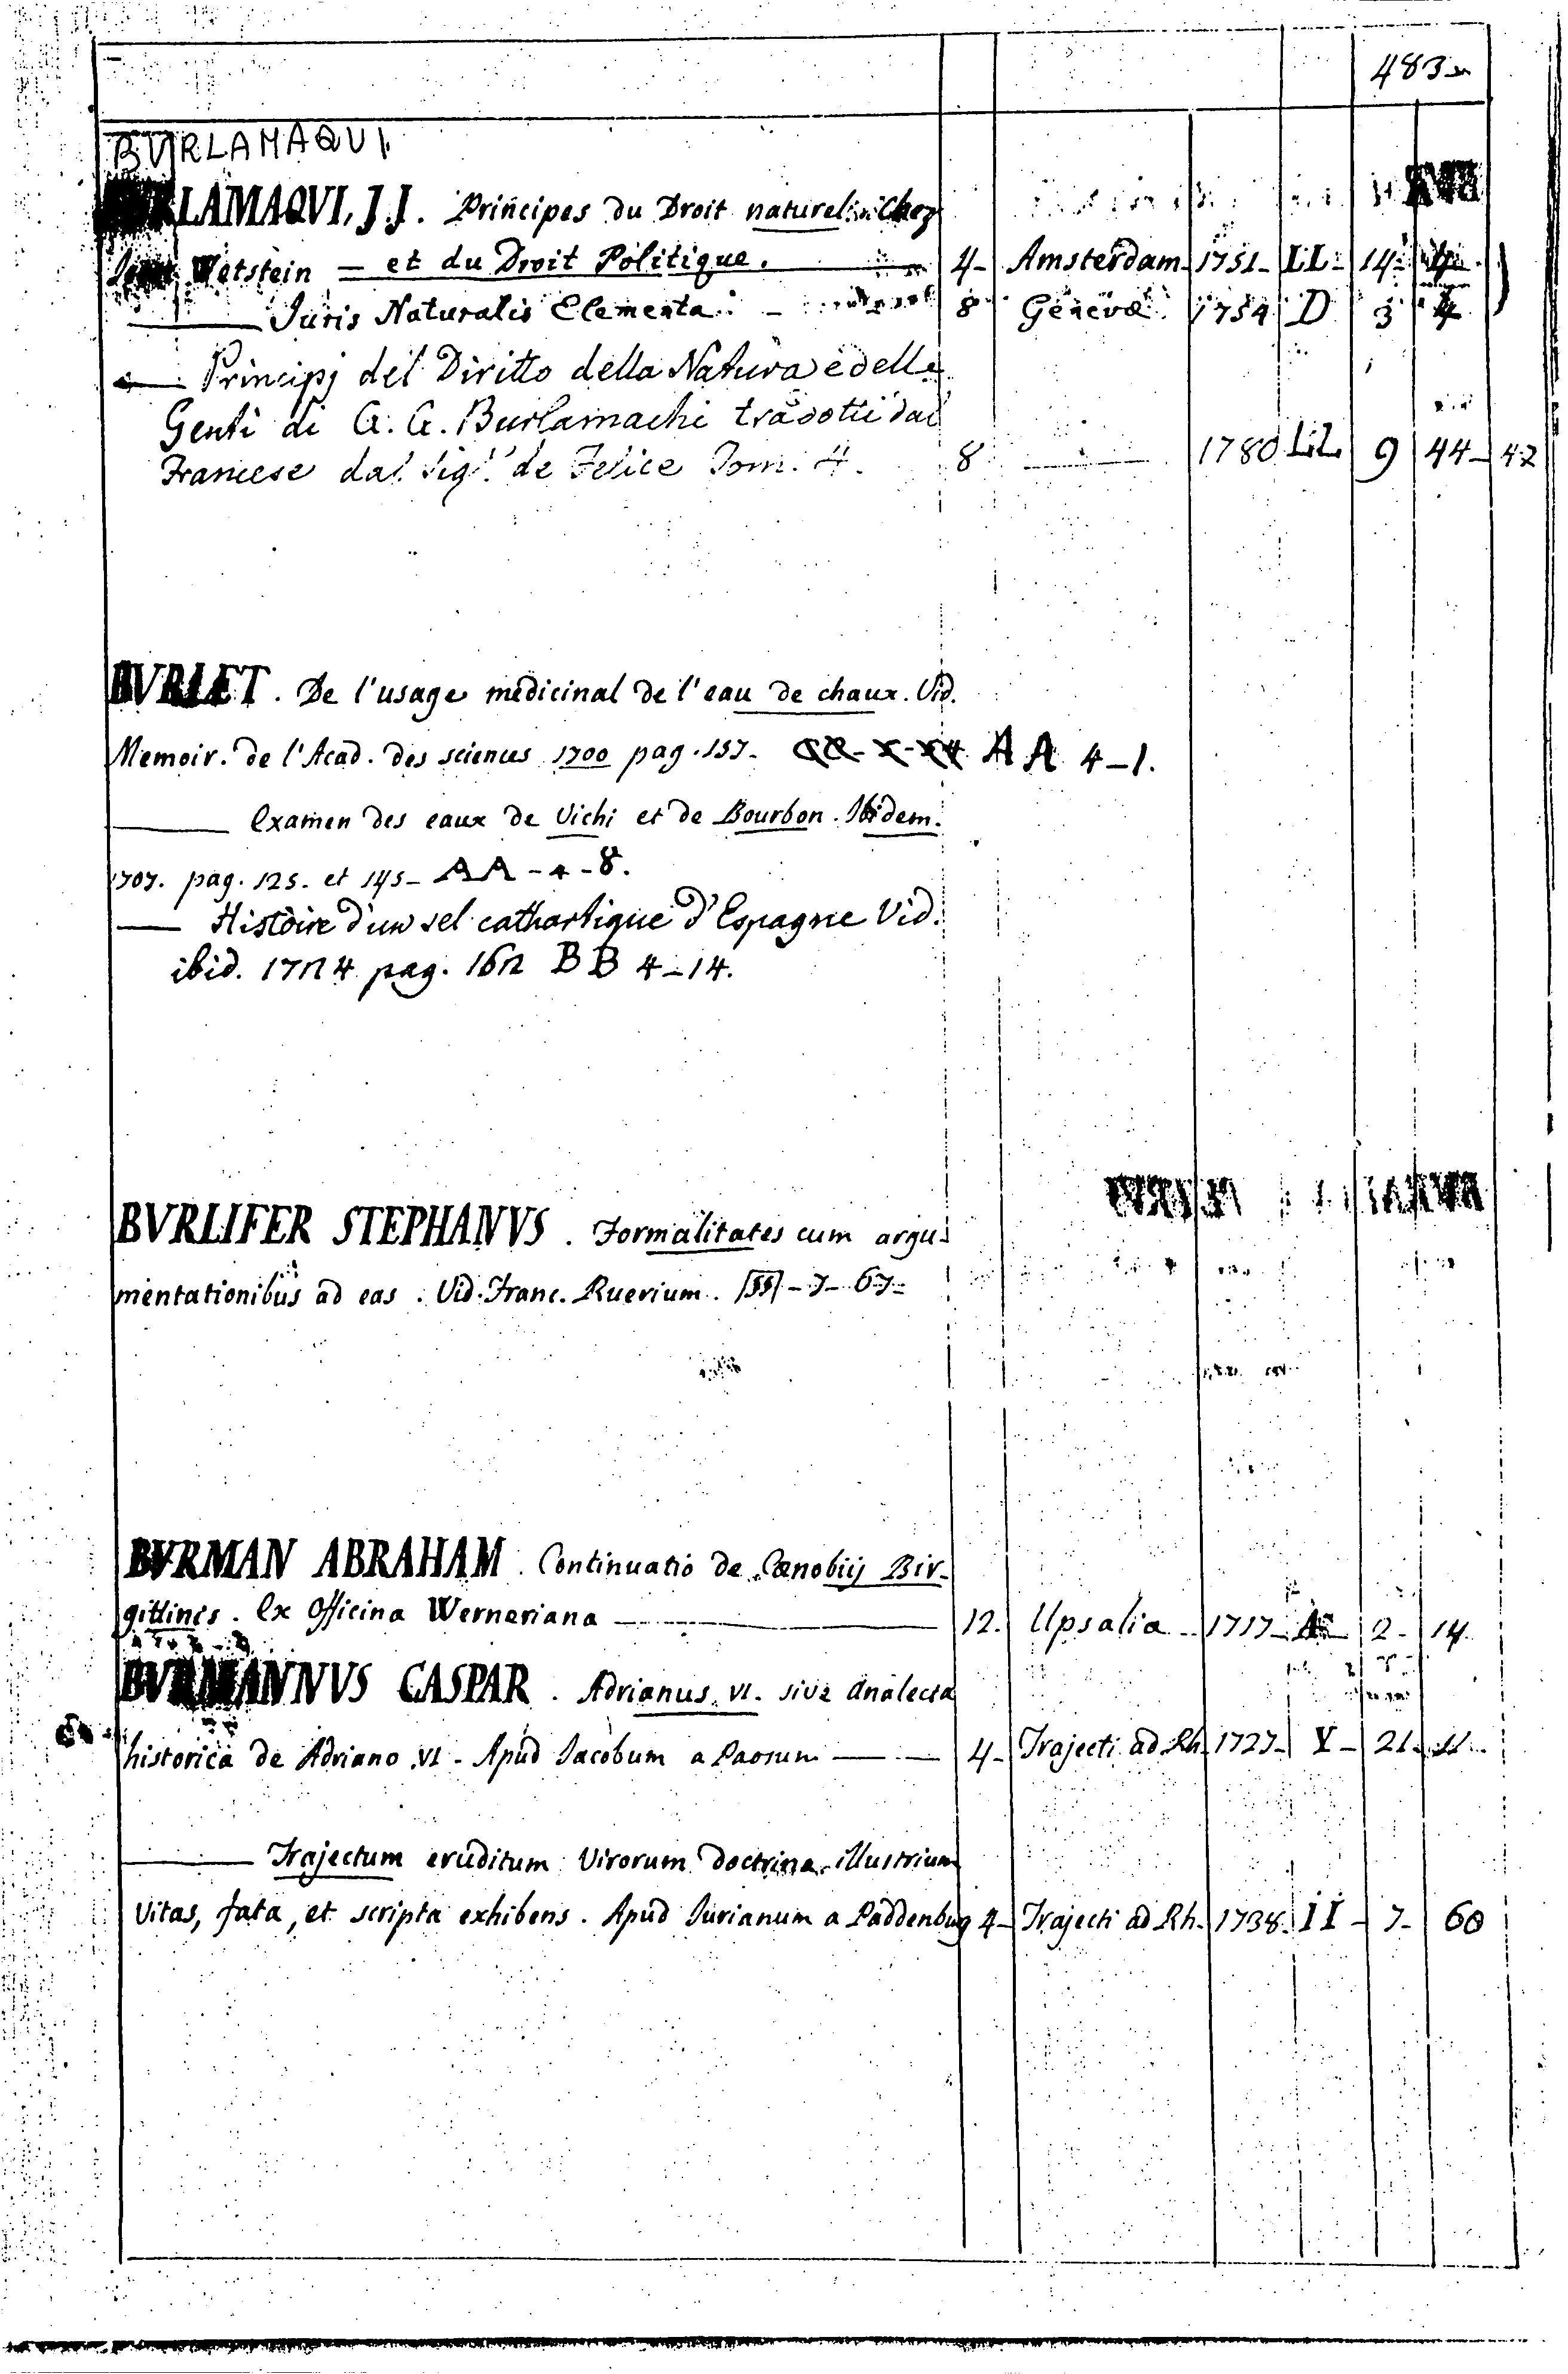 483
BURLAMAQUI
LAMAQVI, J.J. Principes du Droit naturel. Chez
Wetstein — et du Droit Politique. 4- Amsterdam- 1751- LL- 14- 4
Juris Naturalis Elementa. 8 Genevæ 1754 D 3 4
Principj del Diritto della Natura e delle
Genti di G. G. Burlamachi tradotti dal
Francese dal Sigr. de Felice Tom. 4. 8 — 1780 LL 9 44-42
BVRLET. De l'usage medicinal de l'eau de chaux. Vid.
Memoir. de l'Acad. des sciences 1700 pag. 157- AA 4-1.
Examen des eaux de Vichi et de Bourbon. Ibidem.
1707. pag. 125. et 145- AA-4-8.
— Histoire d'un sel cathartique d'Espagne Vid.
ibid. 1724 pag. 162 BB 4-14.
BVRLIFER STEPHANVS. Formalitates cum argu-
mentationibus ad eas. Vid. Franc. Ruerium. SS-7-67-
BVRMAN ABRAHAM. Continuatio de Cœnobiis Bir-
gittinis. Ex Officina Werneriana — 12. Upsalia - 1717- A- 2- 14.
BVRMANNVS CASPAR. Adrianus VI. sive Analecta
historica de Adriano VI- Apud Jacobum a Paosum — 4- Trajecti ad Rh. 1727- Y- 21- 11
Trajectum eruditum Virorum doctrina illustrium
Vitas, fata, et scripta exhibens. Apud Jurianum a Paddenbug 4- Trajecti ad Rh. 1738. II- 7- 60